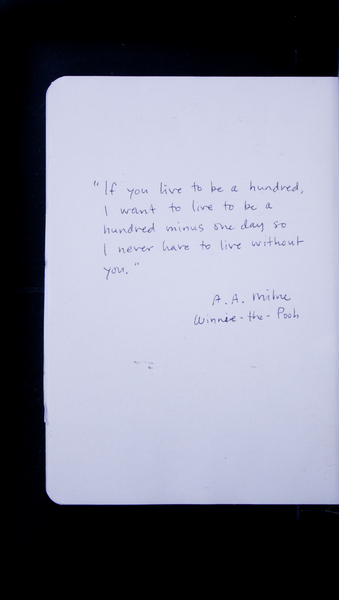 "If you live to be a hundred,
I want to live to be a
hundred minus one day so
I never have to live without
you."
A.A. Milne
Winnie-the-Pooh